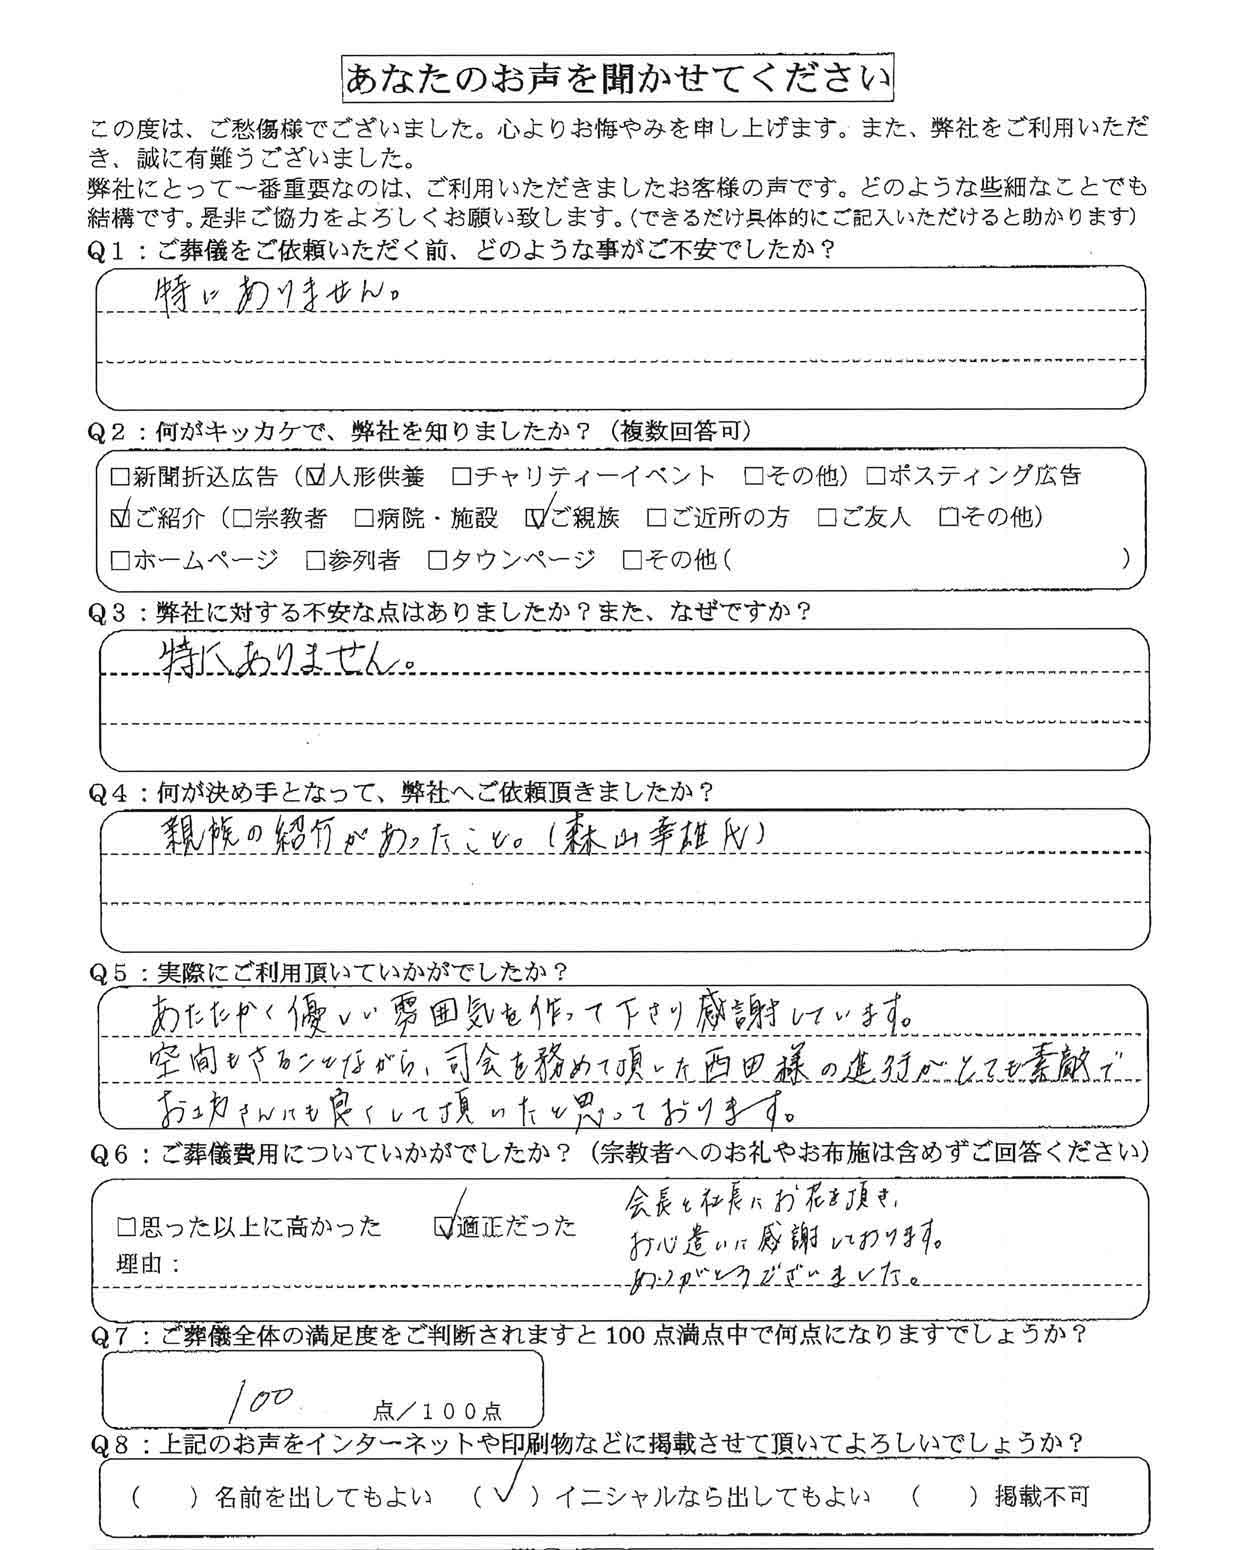 あなたのお声を聞かせてください
この度は、ご愁傷様でございました。心よりお悔やみを申し上げます。また、弊社をご利用いただ
き、誠に有難うございました。
弊社にとって一番重要なのは、ご利用いただきましたお客様の声です。どのような些細なことでも
結構です。是非ご協力をよろしくお願い致します。（できるだけ具体的にご記入いただけると助かります）
Q1：ご葬儀をご依頼いただく前、どのような事がご不安でしたか？
特にありません。
Q2：何がキッカケで、弊社を知りましたか？（複数回答可）
□新聞折込広告（☑人形供養　□チャリティーイベント　□その他）□ポスティング広告
☑ご紹介（□宗教者　□病院・施設　☑ご親族　□ご近所の方　□ご友人　□その他）
□ホームページ　□参列者　□タウンページ　□その他（　　　）
Q3：弊社に対する不安な点はありましたか？また、なぜですか？
特にありません。
Q4：何が決め手となって、弊社へご依頼頂きましたか？
親族の紹介があったこと。（森山幸雄氏）
Q5：実際にご利用頂いていかがでしたか？
あたたかく優しい雰囲気を作って下さり感謝しています。
空間もさることながら、司会を務めて頂いた西田様の進行がとても素敵で
お立力さんにも良くして頂いたと思っております。
Q6：ご葬儀費用についていかがでしたか？（宗教者へのお礼やお布施は含めずご回答ください）
□思った以上に高かった　☑適正だった
理由：
会長と社長にお花を頂き、
お心遣いに感謝しております。
ありがとうございました。
Q7：ご葬儀全体の満足度をご判断されますと100点満点中で何点になりますでしょうか？
100 点／100点
Q8：上記のお声をインターネットや印刷物などに掲載させて頂いてよろしいでしょうか？
（　）名前を出してもよい　（✓）イニシャルなら出してもよい　（　）掲載不可